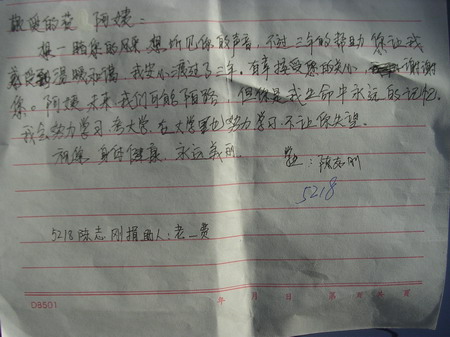 敬爱的黄阿姨：
想一睹您的风采，想听见你的声音，不过三年的帮助您让我
感受到温暖和谐，我安心渡过了三年。有幸接受您的关心，谢谢
您。阿姨，未来，我们可能陌路，但你是我生命中永远的记忆。
我会努力学习，考大学，在大学里也努力学习，不让你失望。
祝您 身体健康，永远美丽。
学生：陈志刚
5218
5218陈志刚捐助人：老一贾
DB501 年 月 日 第 页 共 页